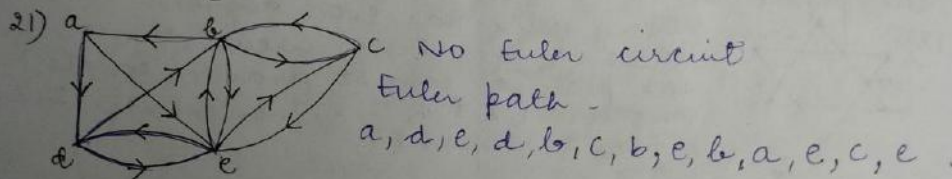 21) a b c No Euler circuit
Euler path -
d e a, d, e, d, b, c, b, e, b, a, e, c, e